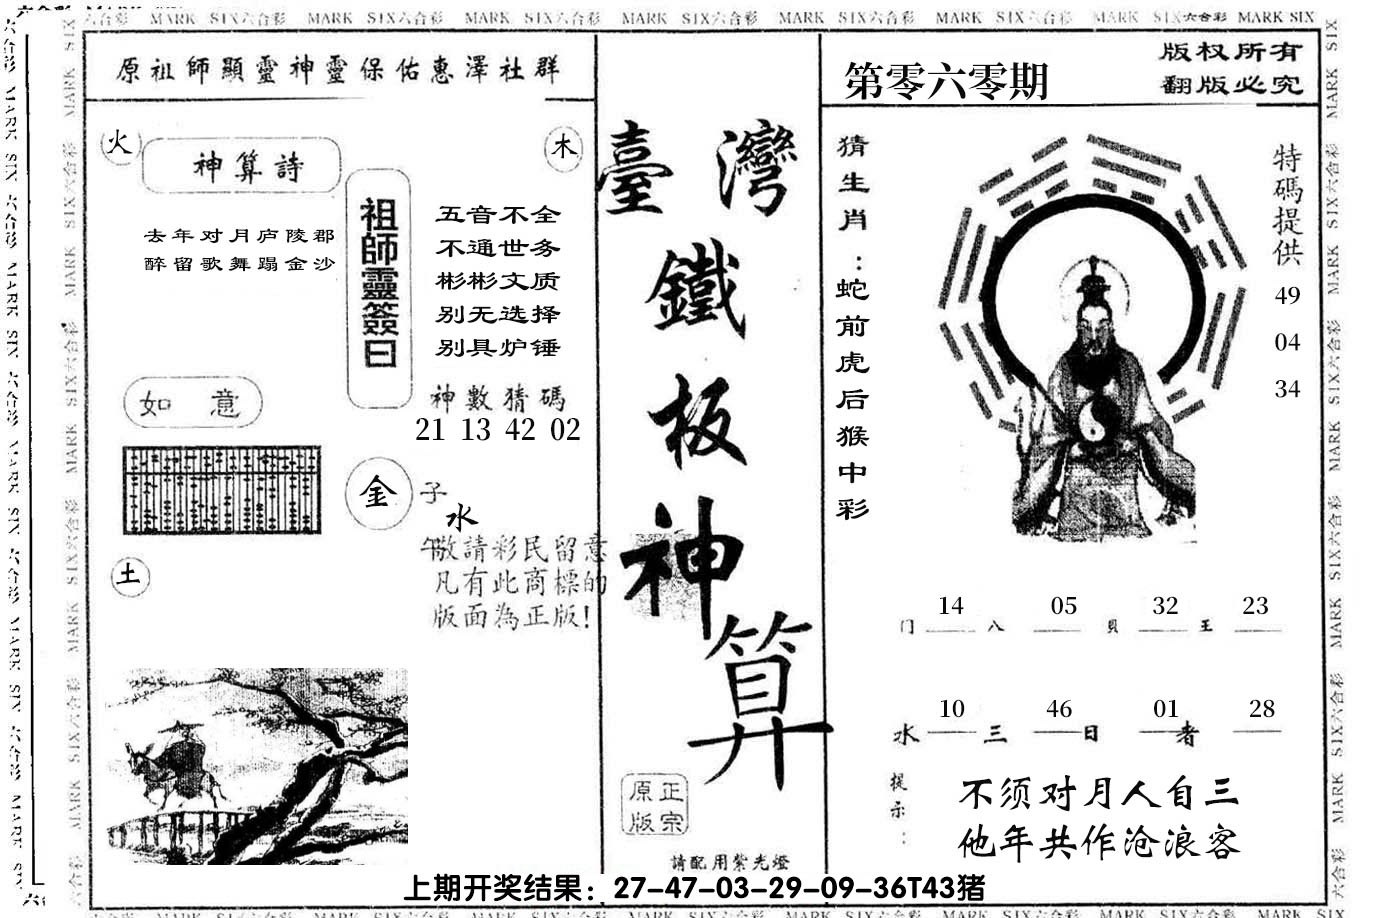 MARK SIX六合彩 MARK SIX六合彩 MARK SIX六合彩 MARK SIX六合彩 MARK SIX六合彩 MARK SIX六合彩 MARK SIX六合彩 MARK SIX
原祖師顯靈神靈保佑惠澤社群
火
神算詩
木
去年对月庐陵郡
醉留歌舞蹋金沙
祖師靈簽曰
五音不全
不通世务
彬彬文质
别无选择
别具炉锤
神數猜碼
21 13 42 02
如意
金
子
水
午
敬請彩民留意
凡有此商標的
版面為正版!
土
臺灣
鐵
板
神
算
正宗
原版
請配用紫光燈
第零六零期
版权所有
翻版必究
猜生肖:蛇前虎后猴中彩
特碼提供
49
04
34
14 05 32 23
门 八 貝 王
10 46 01 28
水 三 日 者
提示:
不须对月人自三
他年共作沧浪客
上期开奖结果：27-47-03-29-09-36T43猪